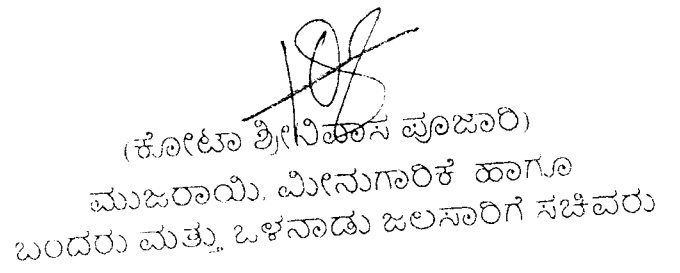 (ಕೋಟಾ ಶ್ರೀನಿವಾಸ ಪೂಜಾರಿ)
ಮುಜರಾಯಿ, ಮೀನುಗಾರಿಕೆ ಹಾಗೂ
ಬಂದರು ಮತ್ತು ಒಳನಾಡು ಜಲಸಾರಿಗೆ ಸಚಿವರು